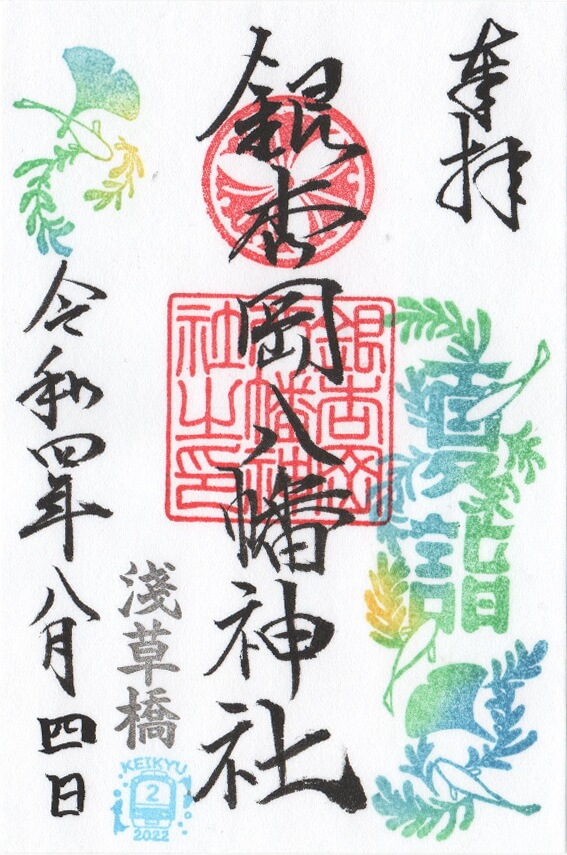 奉拝
夏詣
銀杏岡八幡神社
銀杏岡八幡神社之印
浅草橋
KEIKYU
2
2022
令和四年八月四日